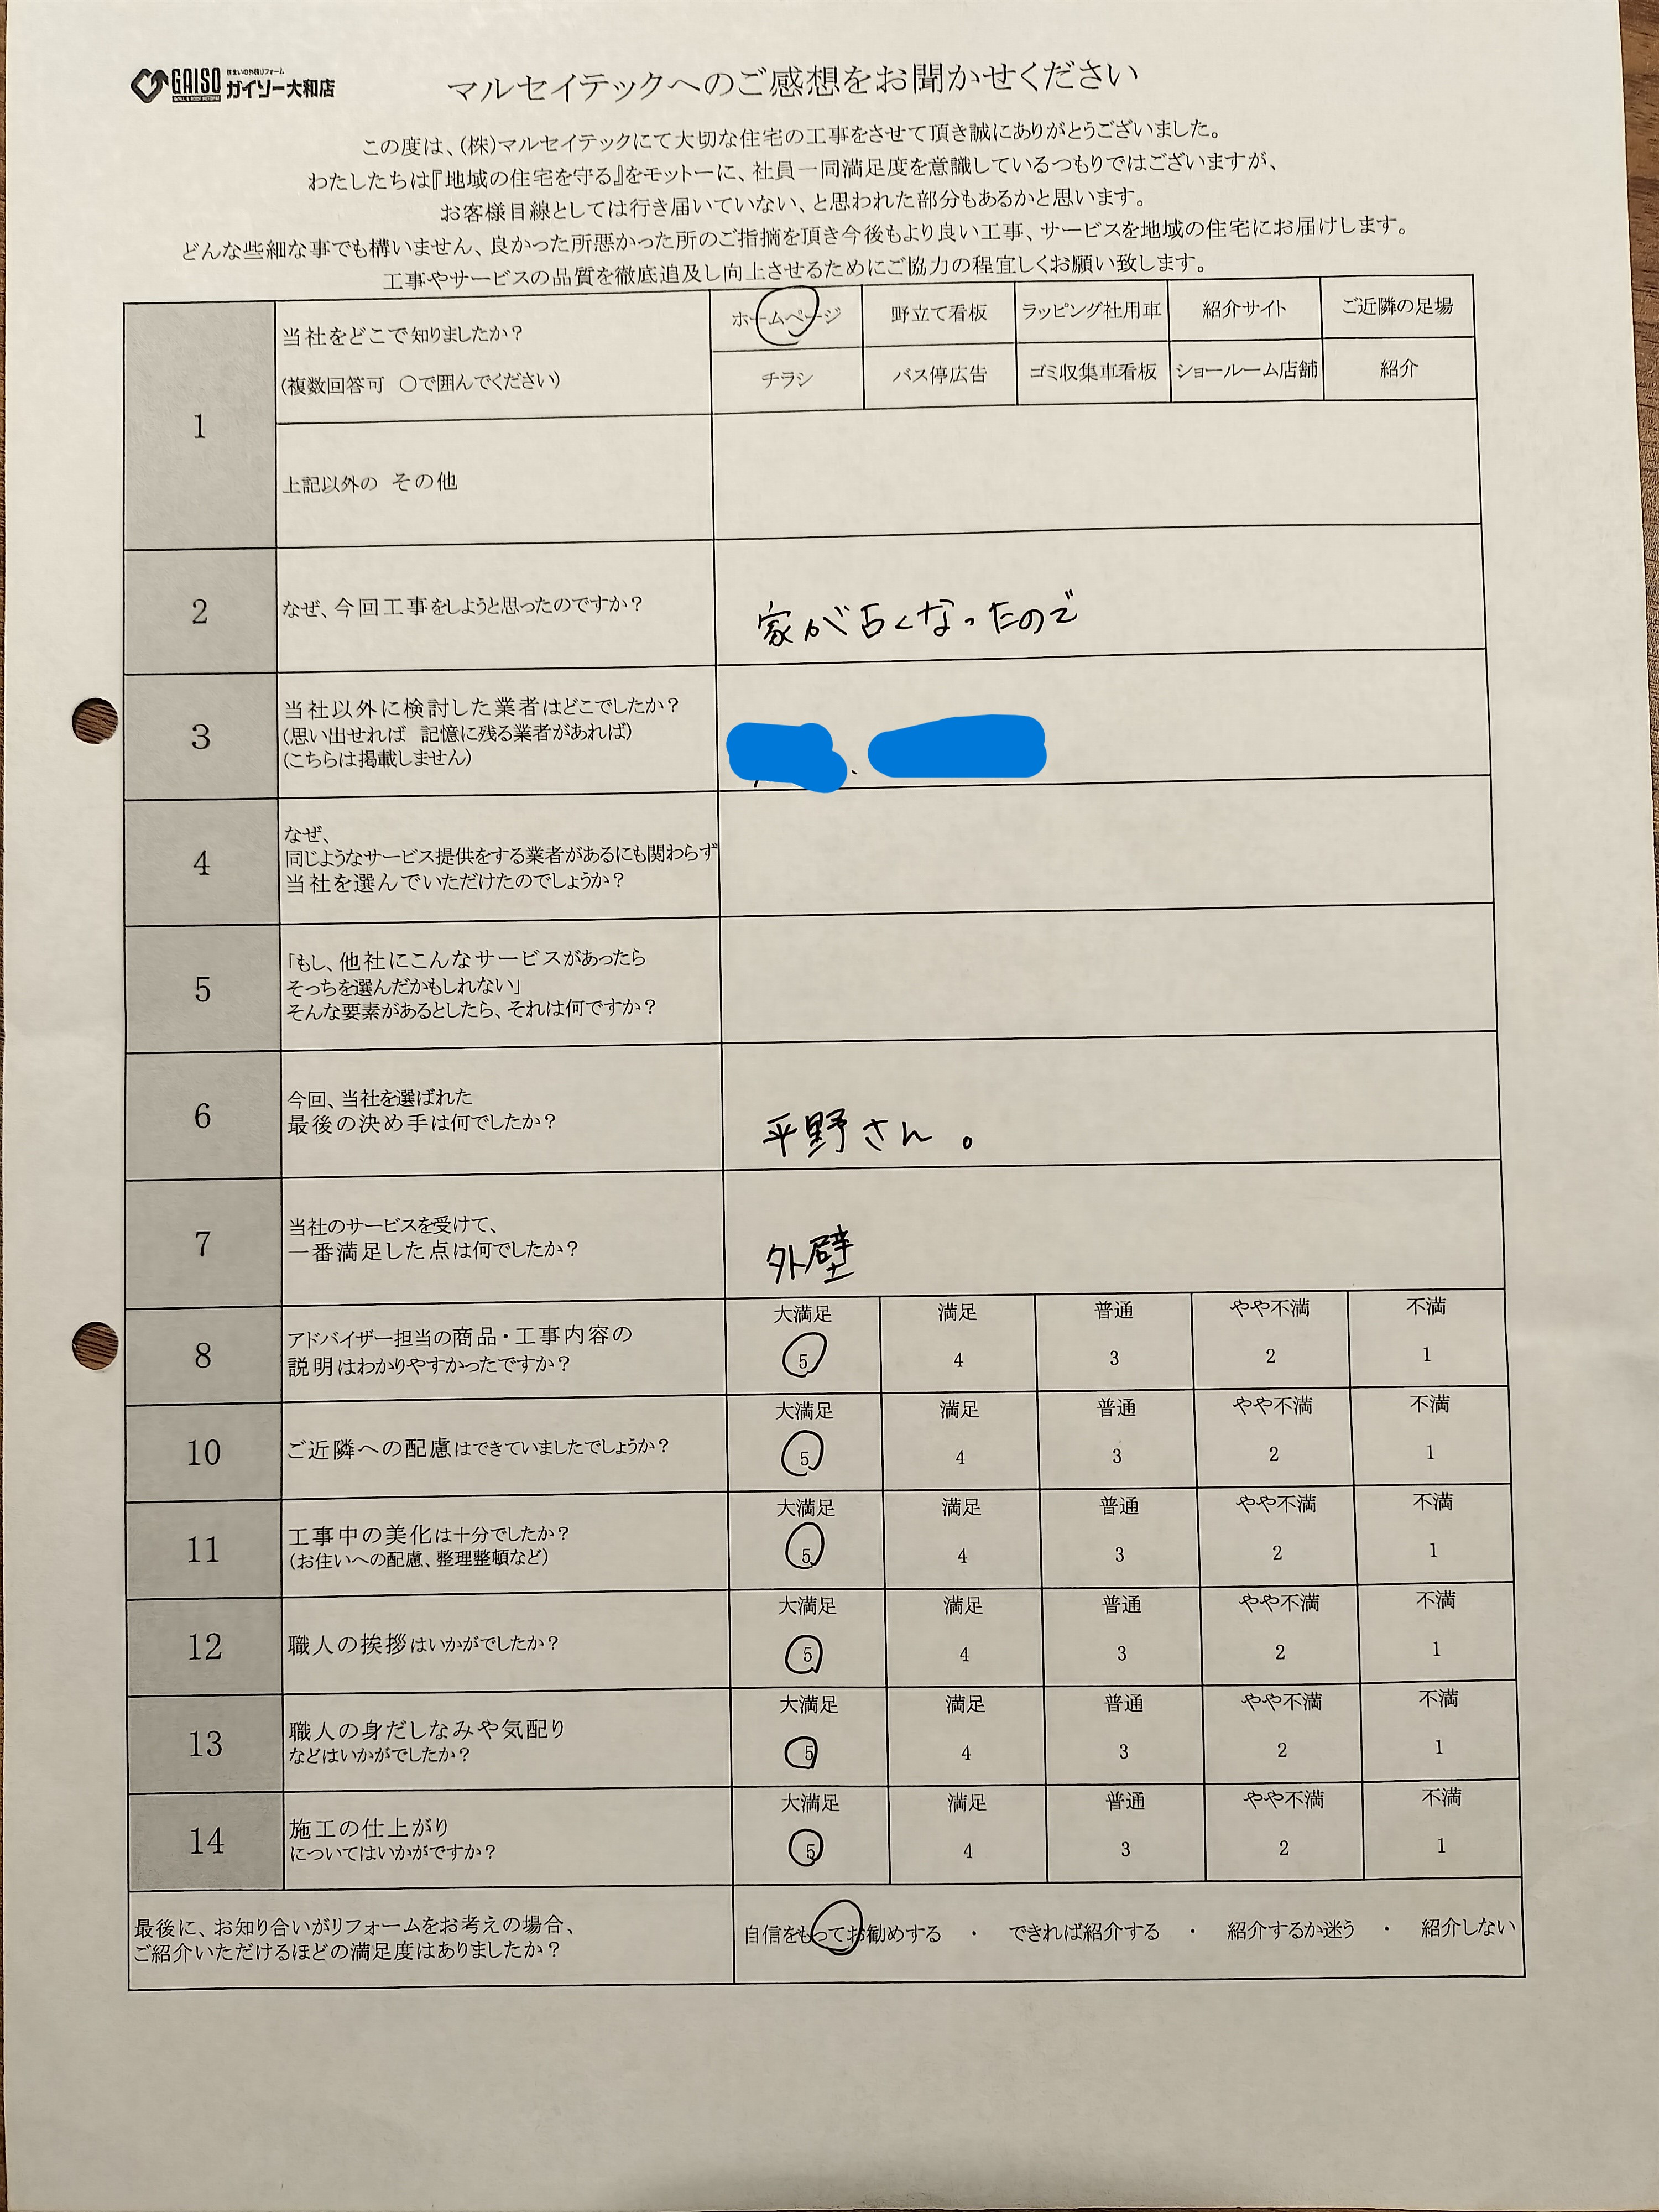 GAISO 住まいの外装リフォーム ガイソー大和店
マルセイテックへのご感想をお聞かせください
この度は、(株)マルセイテックにて大切な住宅の工事をさせて頂き誠にありがとうございました。
わたしたちは『地域の住宅を守る』をモットーに、社員一同満足度を意識しているつもりではございますが、
お客様目線としては行き届いていない、と思われた部分もあるかと思います。
どんな些細な事でも構いません、良かった所悪かった所のご指摘を頂き今後もより良い工事、サービスを地域の住宅にお届けします。
工事やサービスの品質を徹底追及し向上させるためにご協力の程宜しくお願い致します。
1
当社をどこで知りましたか?
(複数回答可 ○で囲んでください)
ホームページ 野立て看板 ラッピング社用車 紹介サイト ご近隣の足場
チラシ バス停広告 ゴミ収集車看板 ショールーム店舗 紹介
上記以外の その他
2
なぜ、今回工事をしようと思ったのですか?
家が古くなったので
3
当社以外に検討した業者はどこでしたか?
(思い出せれば 記憶に残る業者があれば)
(こちらは掲載しません)
4
なぜ、
同じようなサービス提供をする業者があるにも関わらず
当社を選んでいただけたのでしょうか?
5
「もし、他社にこんなサービスがあったら
そっちを選んだかもしれない」
そんな要素があるとしたら、それは何ですか?
6
今回、当社を選ばれた
最後の決め手は何でしたか?
平野さん。
7
当社のサービスを受けて、
一番満足した点は何でしたか?
外壁
8
アドバイザー担当の商品・工事内容の
説明はわかりやすかったですか?
大満足 満足 普通 やや不満 不満
5 4 3 2 1
10
ご近隣への配慮はできていましたでしょうか?
大満足 満足 普通 やや不満 不満
5 4 3 2 1
11
工事中の美化は十分でしたか?
(お住いへの配慮、整理整頓など)
大満足 満足 普通 やや不満 不満
5 4 3 2 1
12
職人の挨拶はいかがでしたか?
大満足 満足 普通 やや不満 不満
5 4 3 2 1
13
職人の身だしなみや気配り
などはいかがでしたか?
大満足 満足 普通 やや不満 不満
5 4 3 2 1
14
施工の仕上がり
についてはいかがですか?
大満足 満足 普通 やや不満 不満
5 4 3 2 1
最後に、お知り合いがリフォームをお考えの場合、
ご紹介いただけるほどの満足度はありましたか?
自信をもってお勧めする ・ できれば紹介する ・ 紹介するか迷う ・ 紹介しない